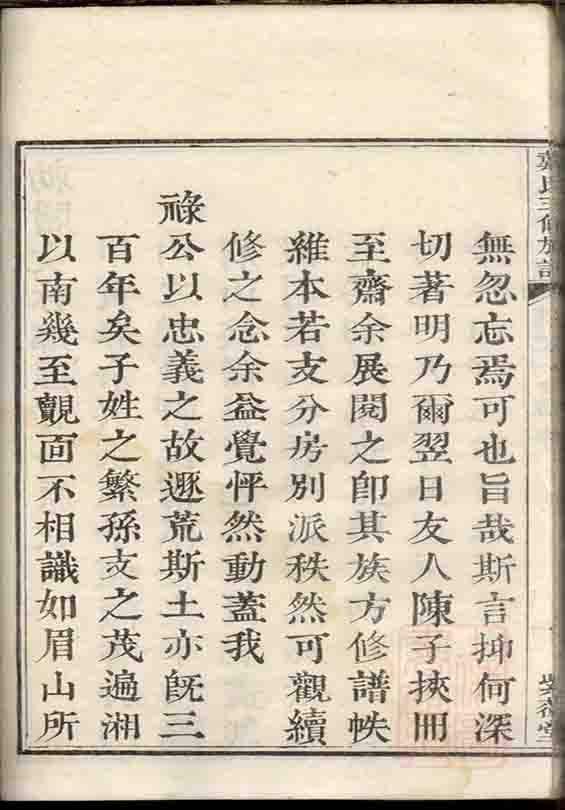 無忽忘焉可也旨哉斯言抑何深
切著明乃爾翌日友人陳子挾冊
至齋余展閱之卽其族方修譜帙
維本若支分房別派秩然可觀續
修之念余益覺怦然動蓋我
祿公以忠義之故遯荒斯土亦旣三
百年矣子姓之繁孫支之茂遍湘
以南幾至覿面不相識如眉山所
氏三修族譜